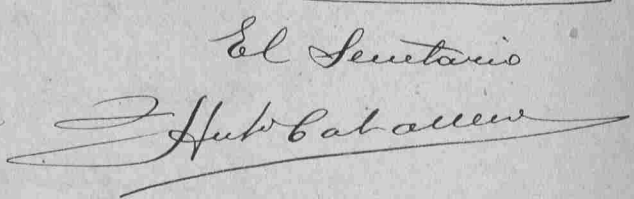 El Secretario
Caballero